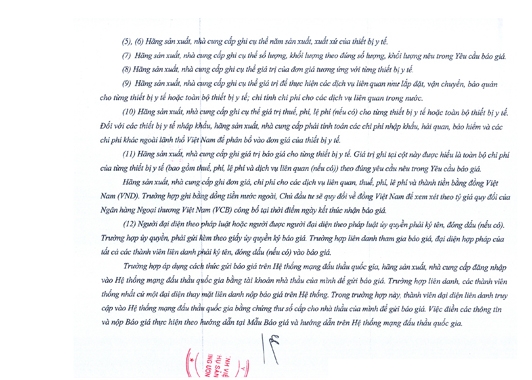 (5), (6) Hãng sản xuất, nhà cung cấp ghi cụ thể năm sản xuất, xuất xứ của thiết bị y tế.
(7) Hãng sản xuất, nhà cung cấp ghi cụ thể số lượng, khối lượng theo đúng số lượng, khối lượng nêu trong Yêu cầu báo giá.
(8) Hãng sản xuất, nhà cung cấp ghi cụ thể giá trị của đơn giá tương ứng với từng thiết bị y tế.
(9) Hãng sản xuất, nhà cung cấp ghi cụ thể giá trị để thực hiện các dịch vụ liên quan như lắp đặt, vận chuyển, bảo quản
cho từng thiết bị y tế hoặc toàn bộ thiết bị y tế; chỉ tính chi phí cho các dịch vụ liên quan trong nước.
(10) Hãng sản xuất, nhà cung cấp ghi cụ thể giá trị thuế, phí, lệ phí (nếu có) cho từng thiết bị y tế hoặc toàn bộ thiết bị y tế.
Đối với các thiết bị y tế nhập khẩu, hãng sản xuất, nhà cung cấp phải tính toán các chi phí nhập khẩu, hải quan, bảo hiểm và các
chi phí khác ngoài lãnh thổ Việt Nam để phân bổ vào đơn giá của thiết bị y tế.
(11) Hãng sản xuất, nhà cung cấp ghi giá trị báo giá cho từng thiết bị y tế. Giá trị ghi tại cột này được hiểu là toàn bộ chi phí
của từng thiết bị y tế (bao gồm thuế, phí, lệ phí và dịch vụ liên quan (nếu có)) theo đúng yêu cầu nêu trong Yêu cầu báo giá.
Hãng sản xuất, nhà cung cấp ghi đơn giá, chi phí cho các dịch vụ liên quan, thuế, phí, lệ phí và thành tiền bằng đồng Việt
Nam (VND). Trường hợp ghi bằng đồng tiền nước ngoài, Chủ đầu tư sẽ quy đổi về đồng Việt Nam để xem xét theo tỷ giá quy đổi của
Ngân hàng Ngoại thương Việt Nam (VCB) công bố tại thời điểm ngày kết thúc nhận báo giá.
(12) Người đại diện theo pháp luật hoặc người được người đại diện theo pháp luật ủy quyền phải ký tên, đóng dấu (nếu có).
Trường hợp ủy quyền, phải gửi kèm theo giấy ủy quyền ký báo giá. Trường hợp liên danh tham gia báo giá, đại diện hợp pháp của
tất cả các thành viên liên danh phải ký tên, đóng dấu (nếu có) vào báo giá.
Trường hợp áp dụng cách thức gửi báo giá trên Hệ thống mạng đấu thầu quốc gia, hãng sản xuất, nhà cung cấp đăng nhập
vào Hệ thống mạng đấu thầu quốc gia bằng tài khoản nhà thầu của mình để gửi báo giá. Trường hợp liên danh, các thành viên
thống nhất cử một đại diện thay mặt liên danh nộp báo giá trên Hệ thống. Trong trường hợp này, thành viên đại diện liên danh truy
cập vào Hệ thống mạng đấu thầu quốc gia bằng chứng thư số cấp cho nhà thầu của mình để gửi báo giá. Việc điền các thông tin
và nộp Báo giá thực hiện theo hướng dẫn tại Mẫu Báo giá và hướng dẫn trên Hệ thống mạng đấu thầu quốc gia.